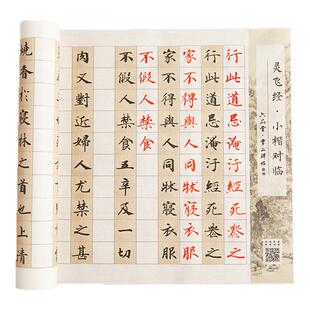 灵飞经·小楷对临
行此道忌淹汙經死喪之
行此道忌淹汙經死喪之
家不得與人同牀寢衣服
家不得與人同牀寢衣服
不假人禁食
不假人禁食五辛及一切
肉又對近婦人尤禁之甚
燒香於寢牀之首也上清